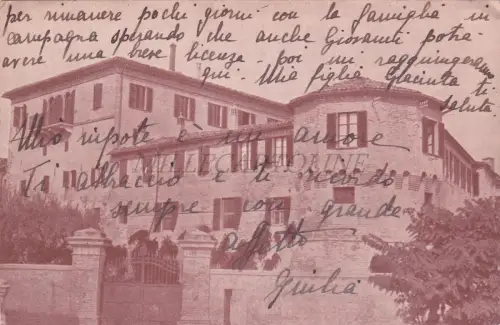 per rimanere pochi giorni con la famiglia in
campagna sperando che anche Giovanni potrà
avere una breve licenza e poi mi raggiungeranno
qui. Mia figlia Giacinta ti
saluta.
Mio nipote è un amore
MILLECARTOLINE
Ti abbraccio e ti ricordo
sempre con grande
affetto
Giulia